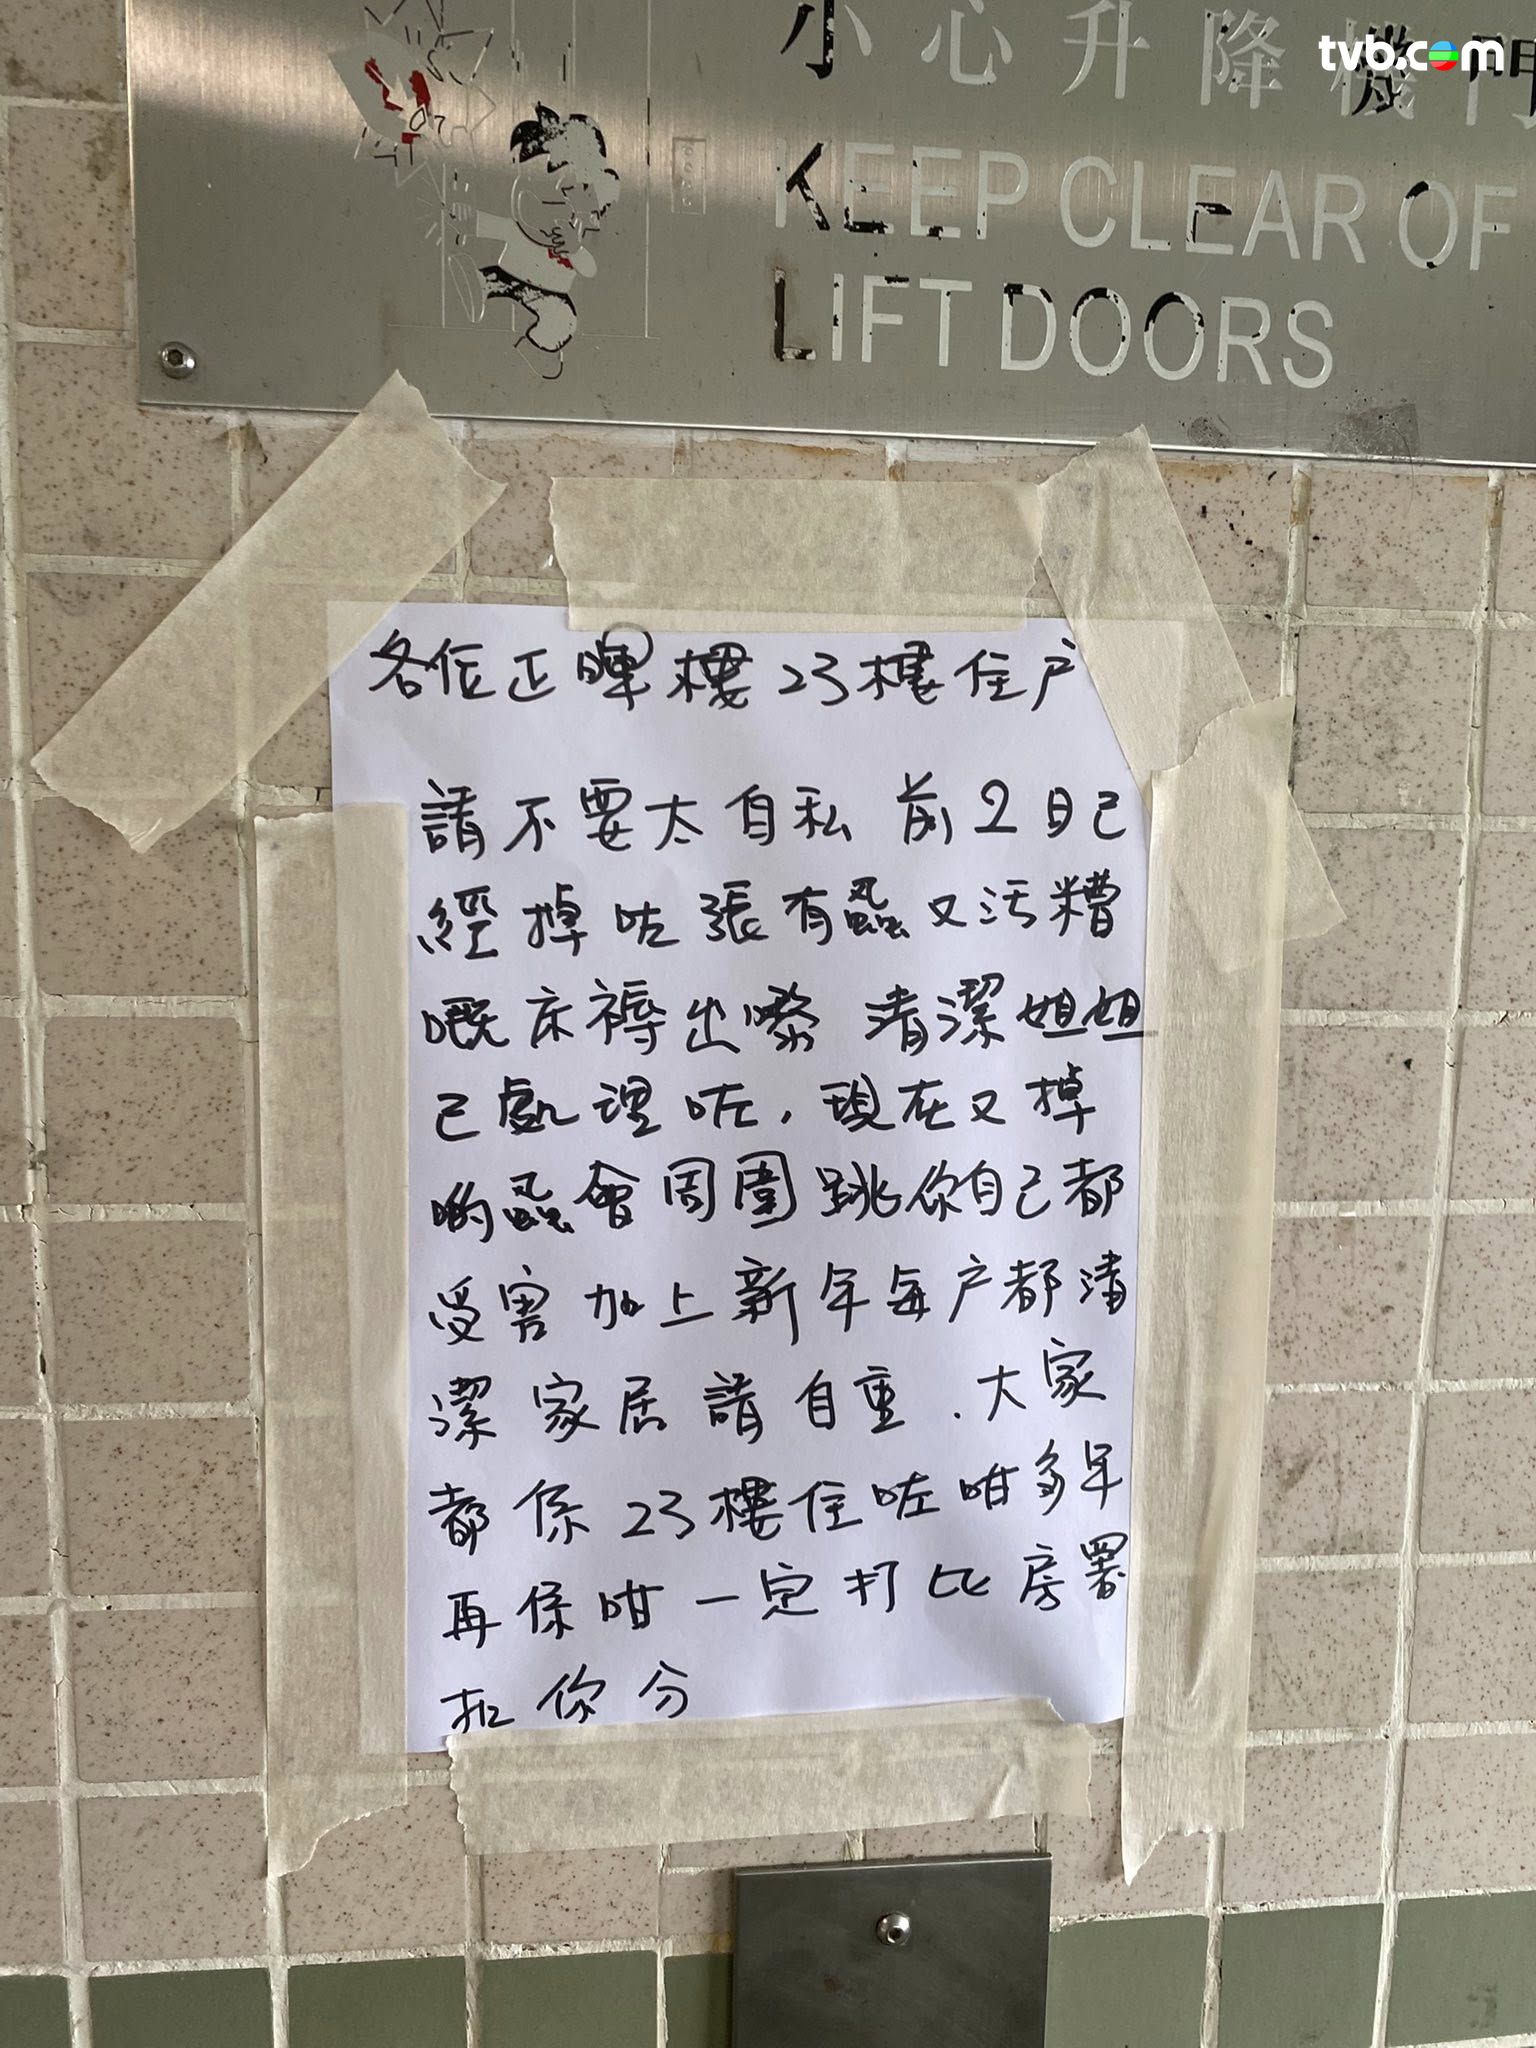 小心升降機門
tvb.com
KEEP CLEAR OF
LIFT DOORS
各位正暉樓23樓住户
請不要太自私 前2日已
經掉咗張有蝨又污糟
嘅床褥出嚟 清潔姐姐
已處理咗，現在又掉
啲蝨會周圍跳你自己都
受害加上新年每户都清
潔家居請自重．大家
都係23樓住咗咁多年
再係咁一定打比房署
扣你分